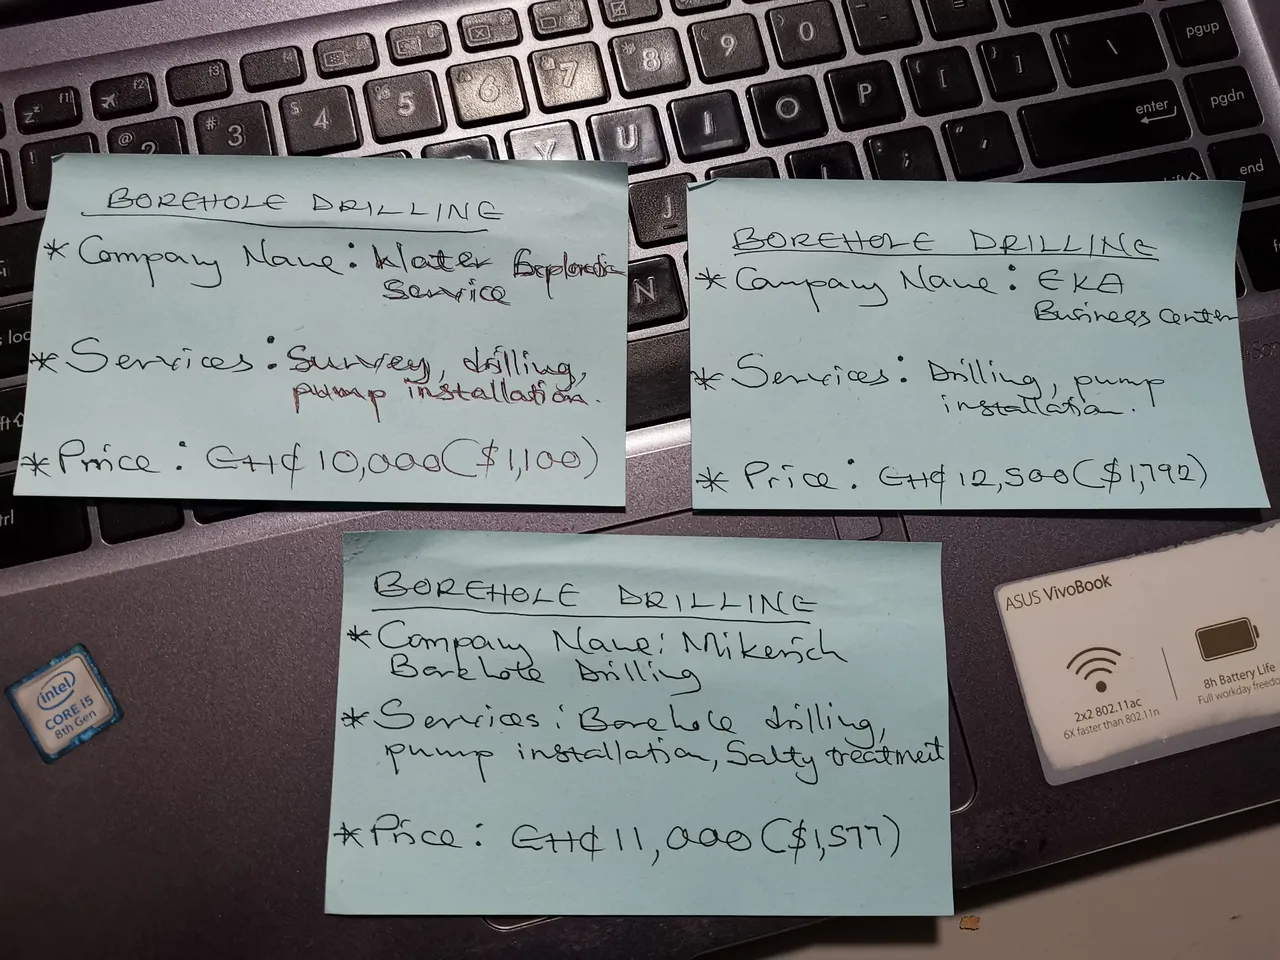 BOREHOLE DRILLING
* Company Name: Water Exploration
Service
* Services: Survey, drilling,
pump installation.
* Price: GH₵ 10,000 ($1,100)
BOREHOLE DRILLING
* Company Name: EKA
Business center
* Services: Drilling, pump
installation.
* Price: GH₵ 12,500 ($1,792)
BOREHOLE DRILLING
* Company Name: Mikerich
Barehote Drilling
* Services: Borehole drilling,
pump installation, Salty treatment
* Price: GH₵ 11,000 ($1,577)
intel
CORE i5
8th Gen
ASUS VivoBook
2x2 802.11ac
6X faster than 802.11n
8h Battery Life
Full workday freedo
f1
f2
f3
f4
@ 2
# 3
$ 4
5
6
7
8
) 0
9
Y
U
I
O
P
[
]
\
pgup
pgdn
enter
end
J
N
;